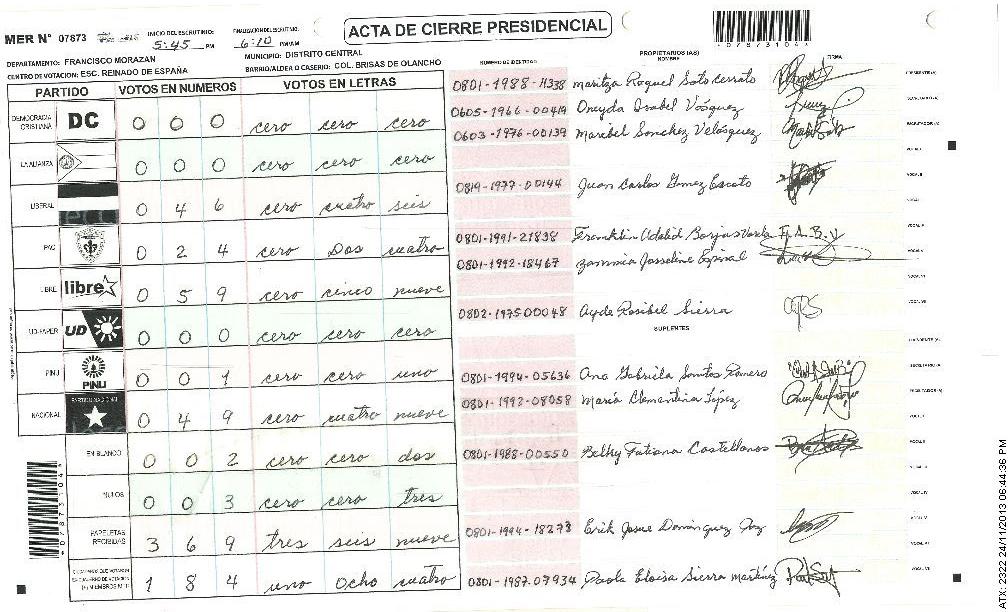 ACTA DE CIERRE PRESIDENCIAL
MER N° 07873
INICIO DEL ESCRUTINIO: 5:45 PM
FINALIZACION ESCRUTINIO: 6:10 PM/AM
*07873104*
DEPARTAMENTO: FRANCISCO MORAZAN
MUNICIPIO: DISTRITO CENTRAL
CENTRO DE VOTACION: ESC. REINADO DE ESPAÑA
BARRIO/ALDEA O CASERIO: COL. BRISAS DE OLANCHO
PARTIDO VOTOS EN NUMEROS VOTOS EN LETRAS
DEMOCRACIA CRISTIANA DC 0 0 0 cero cero cero
LA ALIANZA 0 0 0 cero cero cero
LIBERAL 0 4 6 cero cuatro seis
PAC 0 2 4 cero Dos cuatro
LIBRE libre 0 5 9 cero cinco nueve
UD-FAPER UD 0 0 0 cero cero cero
PINU PINU 0 0 1 cero cero uno
NACIONAL PARTIDO NACIONAL 0 4 9 cero cuatro nueve
EN BLANCO 0 0 2 cero cero dos
NULOS 0 0 3 cero cero tres
PAPELETAS RECIBIDAS 3 6 9 tres seis nueve
1 8 4 uno ocho cuatro
*07873104*
NUMERO DE IDENTIDAD
PROPIETARIOS (AS)
NOMBRE
FIRMA
0801-1988-11338 Maritza Raquel Soto Cerrato
PRESIDENTE (A)
0605-1966-00419 Oneyda Isabel Vásquez
SECRETARIO (A)
0603-1976-00139 Maribel Sanchez Velásquez
ESCRUTADOR (A)
VOCAL I
0819-1977-00144 Juan Carlos Gomez Escoto
VOCAL II
0801-1991-21838 Francklin Udalid Borjas Varela F. A. B. V
0801-1992-18467 Zammia Josseline Espinal
0802-197500048 Ayde Rosibel Sierra
SUPLENTES
0801-1994-05636 Ana Gabriela Santos Romero
0801-1992-08058 María Clementina López
0801-1988-00550 Belky Tatiana Castellanos
0801-1994-18273 Erik Josue Dominguez Paz
0801-1987-07934 Paola Eloisa Sierra Martínez
ATX: 2322 24/11/2013 06:44:36 PM